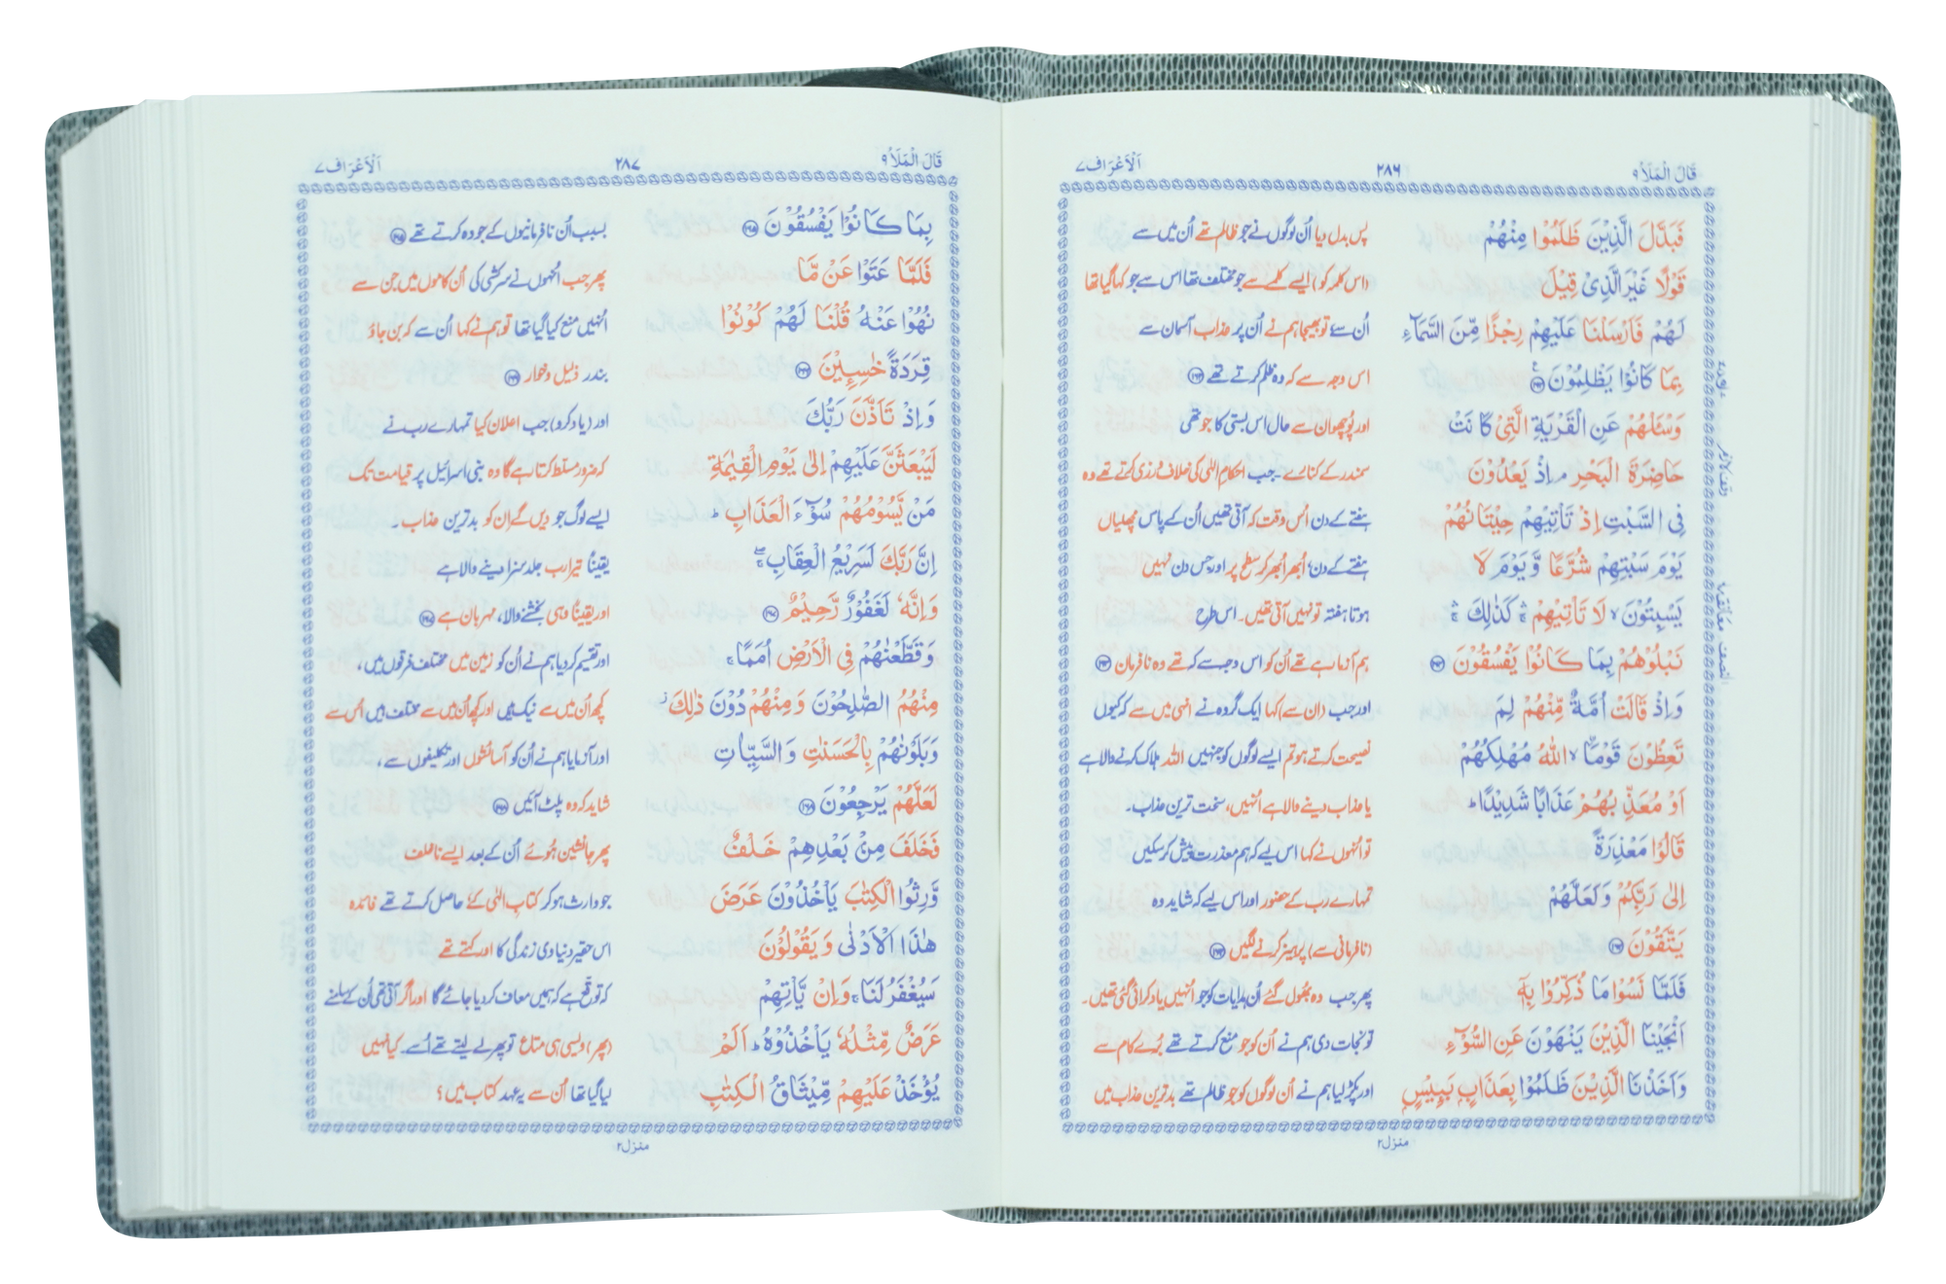 قَالَ الْمَلَاُ ٩ ٢٨٦ اَلْاَعْرَاف ٧
فَبَدَّلَ الَّذِيْنَ ظَلَمُوْا مِنْهُمْ پس بدل دیا اُن لوگوں نے جو ظالم تھے اُن میں سے
قَوْلًا غَيْرَ الَّذِىْ قِيْلَ (اس کلمہ کو) ایسے کلمے سے جو مختلف تھا اس سے جو کہا گیا تھا
لَهُمْ فَاَرْسَلْنَا عَلَيْهِمْ رِجْزًا مِّنَ السَّمَآءِ اُن سے تو بھیجا ہم نے اُن پر عذاب آسمان سے
بِمَا كَانُوْا يَظْلِمُوْنَ ۝١٦٢ اس وجہ سے کہ وہ ظلم کرتے تھے ۝١٦٢
وَسْـَٔلْهُمْ عَنِ الْقَرْيَةِ الَّتِىْ كَانَتْ اور پُوچھو ان سے حال اس بستی کا جو تھی
حَاضِرَةَ الْبَحْرِ ۘ اِذْ يَعْدُوْنَ سمندر کے کنارے۔ جب احکام الٰہی کی خلاف ورزی کرتے تھے وہ
فِى السَّبْتِ اِذْ تَاْتِيْهِمْ حِيْتَانُهُمْ ہفتے کے دن، اُس وقت کہ آتی تھیں اُن کے پاس مچھلیاں
يَوْمَ سَبْتِهِمْ شُرَّعًا وَّيَوْمَ لَا ہفتے کے دن، اُبھر اُبھر کر سطح پر اور جس دن نہیں
يَسْبِتُوْنَ ۙ لَا تَاْتِيْهِمْ ۛ كَذٰلِكَ ۛ ہوتا ہفتہ تو نہیں آتی تھیں۔ اس طرح
نَبْلُوْهُمْ بِمَا كَانُوْا يَفْسُقُوْنَ ۝١٦٣ ہم آزما رہے تھے اُن کو اس وجہ سے کہ تھے وہ نافرمان ۝١٦٣
وَاِذْ قَالَتْ اُمَّةٌ مِّنْهُمْ لِمَ اور جب (ان سے) کہا ایک گروہ نے انہی میں سے کہ کیوں
تَعِظُوْنَ قَوْمَا ۙ اللّٰهُ مُهْلِكُهُمْ نصیحت کرتے ہو تم ایسے لوگوں کو جنہیں اللہ ہلاک کرنے والا ہے
اَوْ مُعَذِّبُهُمْ عَذَابًا شَدِيْدًا ؕ یا عذاب دینے والا ہے اُنہیں، سخت ترین عذاب۔
قَالُوْا مَعْذِرَةً تو اُنہوں نے کہا اس لیے کہ ہم معذرت پیش کر سکیں
اِلٰى رَبِّكُمْ وَلَعَلَّهُمْ تمہارے رب کے حضور اور اس لیے کہ شاید وہ
يَتَّقُوْنَ ۝١٦٤ (نافرمانی سے) پرہیز کرنے لگیں ۝١٦٤
فَلَمَّا نَسُوْا مَا ذُكِّرُوْا بِهٖٓ پھر جب وہ بھُول گئے اُن ہدایات کو جو اُنہیں یاد کرائی گئی تھیں۔
اَنْجَيْنَا الَّذِيْنَ يَنْهَوْنَ عَنِ السُّوْٓءِ تو نجات دی ہم نے اُن کو جو منع کرتے تھے بُرے کام سے
وَاَخَذْنَا الَّذِيْنَ ظَلَمُوْا بِعَذَابٍۭ بَـِٔيْسٍۭ اور پکڑ لیا ہم نے اُن لوگوں کو جو ظالم تھے بدترین عذاب میں
منزل ٢
قَالَ الْمَلَاُ ٩ ٢٨٧ اَلْاَعْرَاف ٧
بِمَا كَانُوْا يَفْسُقُوْنَ ۝١٦٥ بسبب اُن نافرمانیوں کے جو وہ کرتے تھے ۝١٦٥
فَلَمَّا عَتَوْا عَنْ مَّا پھر جب اُنہوں نے سرکشی کی اُن کاموں میں جن سے
نُهُوْا عَنْهُ قُلْنَا لَهُمْ كُوْنُوْا اُنہیں منع کیا گیا تھا تو ہم نے کہا اُن سے کہ بن جاؤ
قِرَدَةً خٰسِـِٕيْنَ ۝١٦٦ بندر ذلیل و خوار ۝١٦٦
وَاِذْ تَاَذَّنَ رَبُّكَ اور (یاد کرو) جب اعلان کیا تمہارے رب نے
لَيَبْعَثَنَّ عَلَيْهِمْ اِلٰى يَوْمِ الْقِيٰمَةِ کہ ضرور مسلط کرتا ہے گا وہ بنی اسرائیل پر قیامت تک
مَنْ يَّسُوْمُهُمْ سُوْٓءَ الْعَذَابِ ؕ ایسے لوگ جو دیں گے ان کو بدترین عذاب۔
اِنَّ رَبَّكَ لَسَرِيْعُ الْعِقَابِ ۖۚ یقیناً تیرا رب جلد سزا دینے والا ہے
وَاِنَّهٗ لَغَفُوْرٌ رَّحِيْمٌ ۝١٦٧ اور یقیناً وہی بخشنے والا، مہربان ہے ۝١٦٧
وَقَطَّعْنٰهُمْ فِى الْاَرْضِ اُمَمًا ۚ اور تقسیم کر دیا ہم نے اُن کو زمین میں مختلف فرقوں میں،
مِنْهُمُ الصّٰلِحُوْنَ وَمِنْهُمْ دُوْنَ ذٰلِكَ ؗ کچھ اُن میں سے نیک ہیں اور کچھ اُن میں سے مختلف ہیں اُس سے
وَبَلَوْنٰهُمْ بِالْحَسَنٰتِ وَالسَّيِّاٰتِ اور آزمایا ہم نے اُن کو آسائشوں اور تکلیفوں سے،
لَعَلَّهُمْ يَرْجِعُوْنَ ۝١٦٨ شاید کہ وہ پلٹ آئیں ۝١٦٨
فَخَلَفَ مِنْۢ بَعْدِهِمْ خَلْفٌ پھر جانشین ہُوئے اُن کے بعد ایسے ناخلف
وَّرِثُوا الْكِتٰبَ يَاْخُذُوْنَ عَرَضَ جو وارث ہو کر کتابِ الٰہی کے حاصل کرتے تھے فائدہ
هٰذَا الْاَدْنٰى وَيَقُوْلُوْنَ اس حقیر دنیاوی زندگی کا اور کہتے تھے
سَيُغْفَرُ لَنَا ۚ وَاِنْ يَّاْتِهِمْ کہ توقع ہے کہ ہمیں معاف کر دیا جائے گا اور اگر آتی تھی اُن کے سامنے
عَرَضٌ مِّثْلُهٗ يَاْخُذُوْهُ ؕ اَلَمْ (پھر) ویسی ہی متاع تو پھر لے لیتے تھے اُسے۔ کیا نہیں
يُؤْخَذْ عَلَيْهِمْ مِّيْثَاقُ الْكِتٰبِ لیا گیا تھا اُن سے یہ عہد کتاب میں؟
منزل ٢